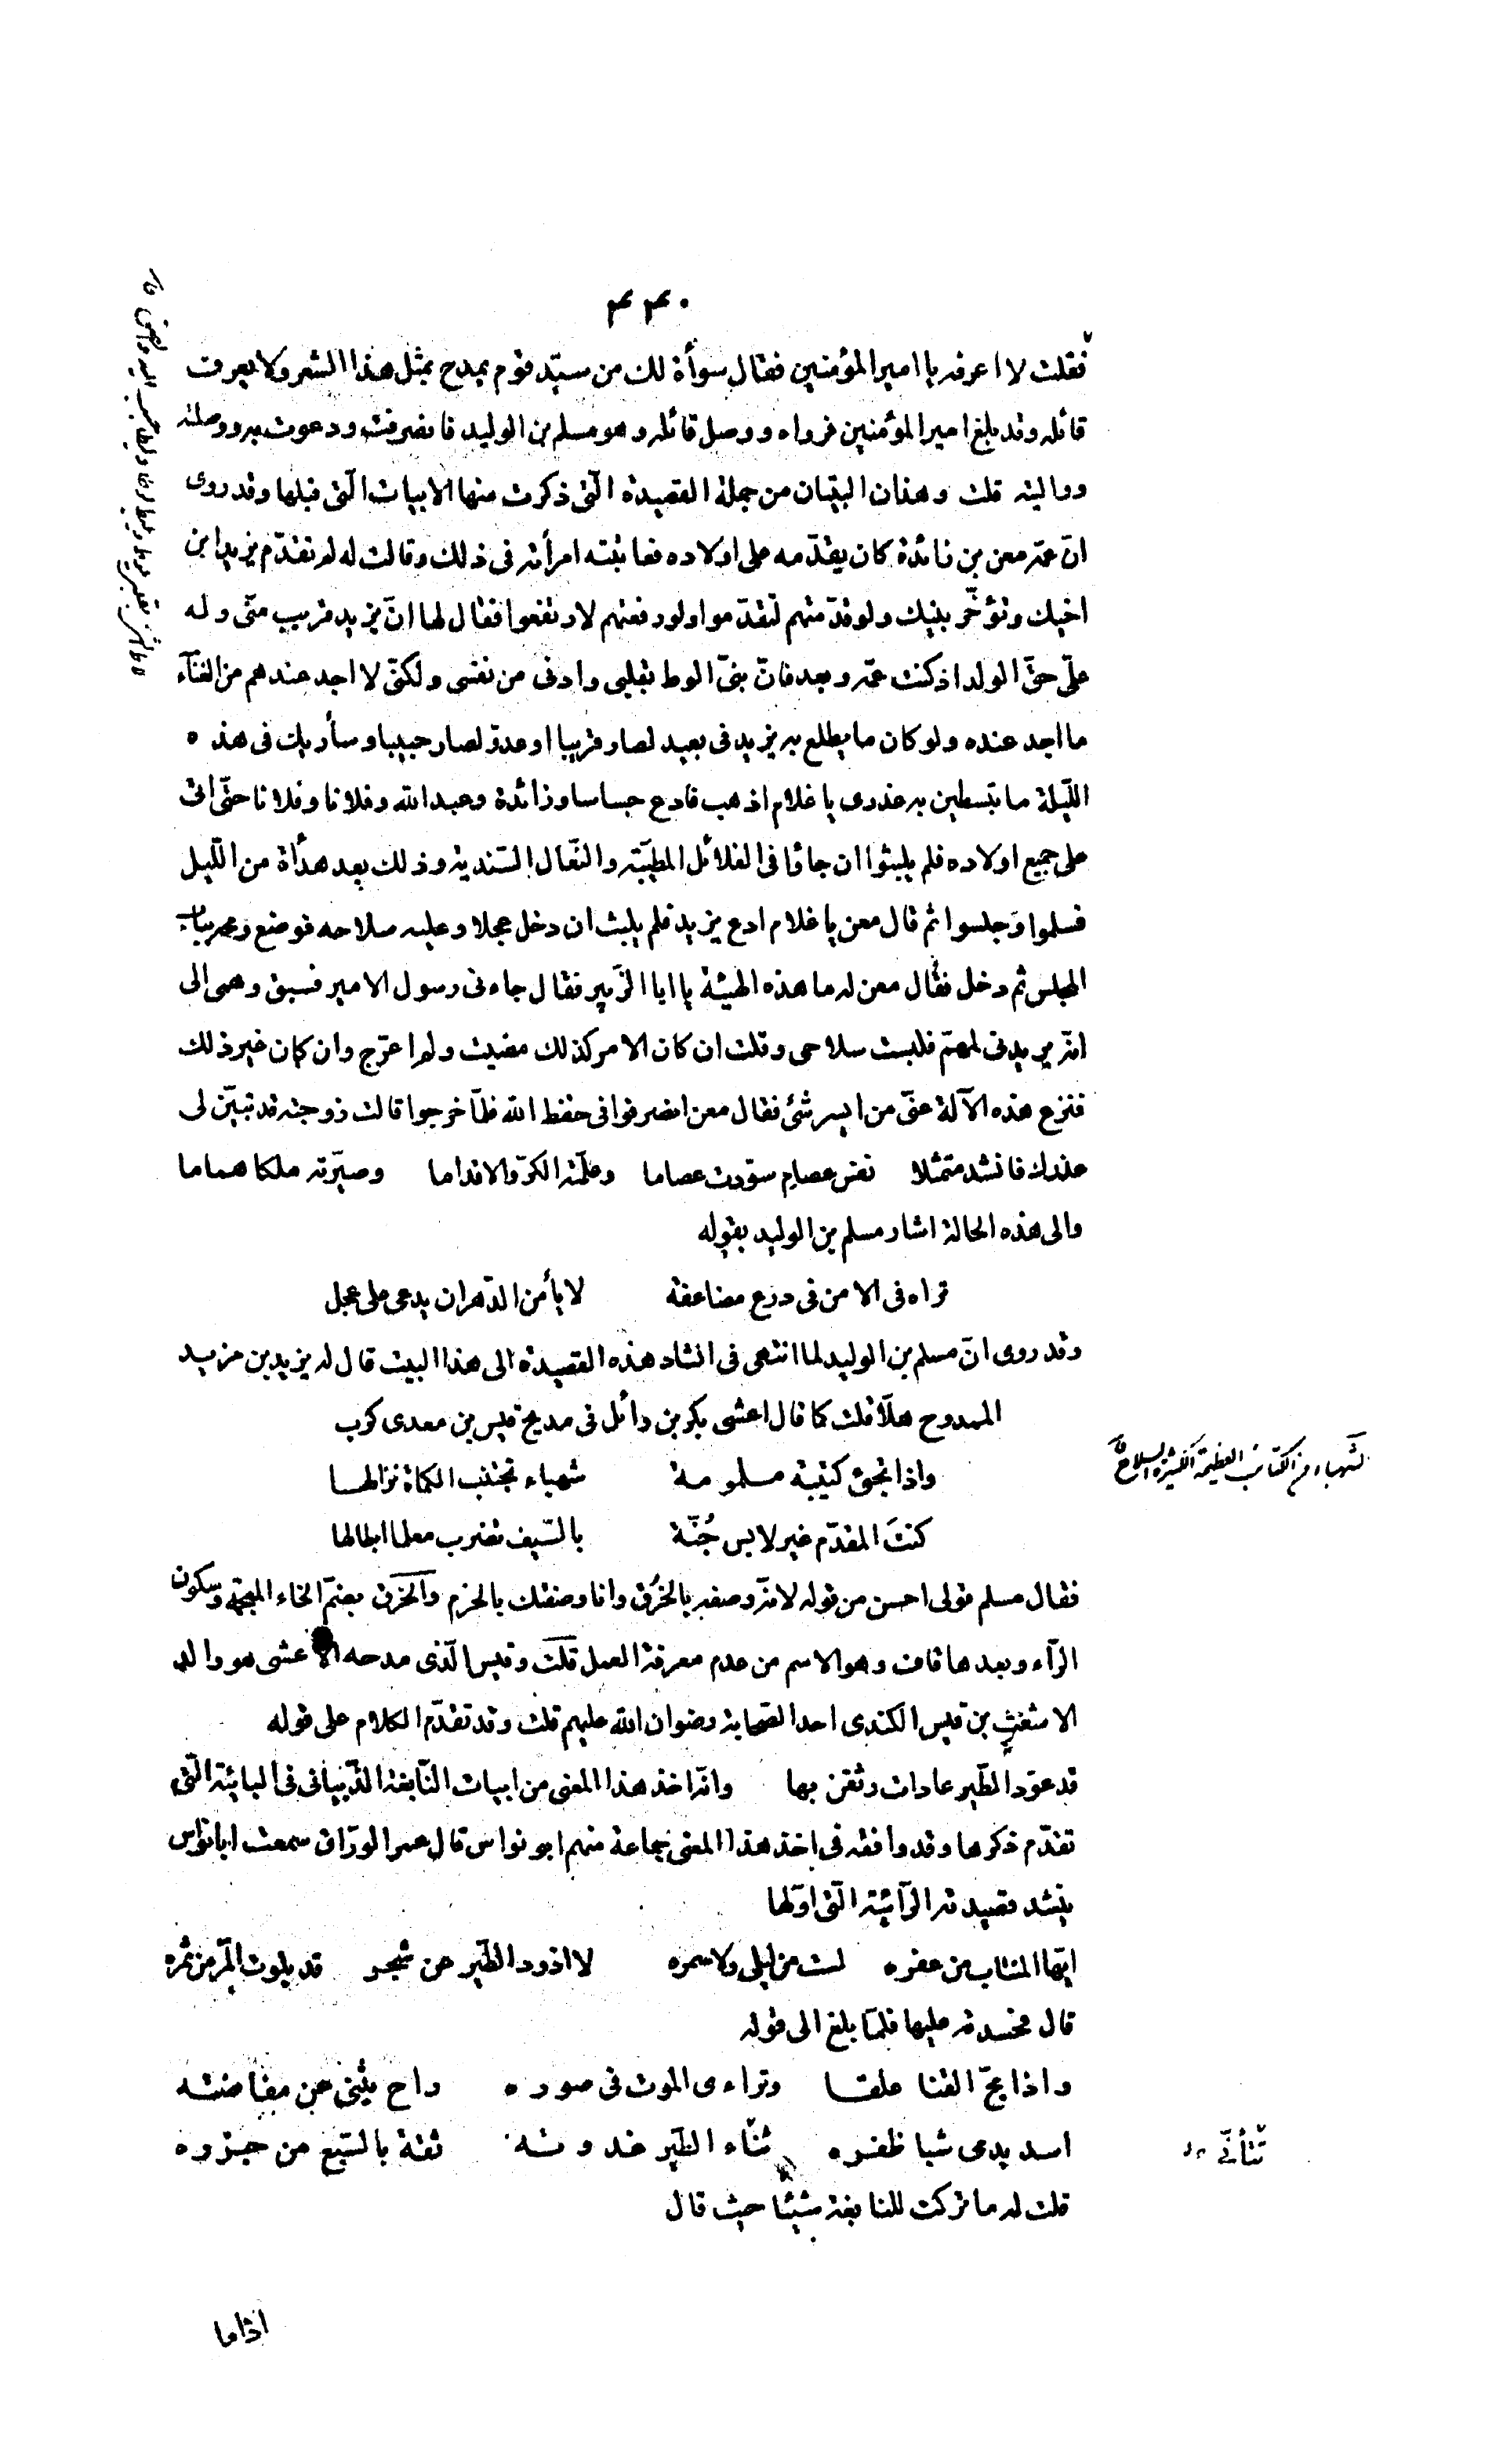 ٣٣٠
فقلت لا اعرفه يا امير المؤمنين فقال سوأة لك من سيّد قوم يمدح بمثل هذا الشعر ولا يعرف
قائله وقد بلغ امير المؤمنين فرواه ووصل قائله وهو مسلم بن الوليد فانصرفت ودعوت به ووصلته
ووليته قلت وهذان البيتان من جملة القصيدة الّتى ذكرت منها الابيات الّتى قبلها وقد روى
انّ عمّه معن بن زائدة كان يقدّمه على اولاده فعاتبته امرأته فى ذلك وقالت له لم تقدّم يزيد ابن
اخيك وتؤخّر بنيك ولو قدّمتهم لتقدّموا ولو رفعتهم لارتفعوا فقال لها انّ يزيد قريب منّى وله
علىّ حقّ الولد اذ كنت عمّه وبعد فانّ بنىّ الوط بقلبى وادنى من نفسى ولكنّى لا اجد عندهم من الغنآء
ما اجد عنده ولو كان ما يطلع به يزيد فى بعيد لصار قريبا او عدوّ لصار حبيبا وسأريك فى هذه
اللّيلة ما تبسطين به عذرى يا غلام اذهب فادع جساسا وزائدة وعبد الله وفلانا وفلانا حتّى اتى
على جميع اولاده فلم يلبثوا ان جاؤا فى الغلائل المطيّبة والنّعال السّندية وذلك بعد هدأة من اللّيل
فسلموا وجلسوا ثم قال معن يا غلام ادع يزيد فلم يلبث ان دخل عجلا وعليه سلاحه فوضع رمحه بباب
المجلس ثم دخل فقال معن له ما هذه الهيئة يا ابا الزّبير فقال جاءنى رسول الامير فسبق وهمى الى
انّه يريدنى لمهمّ فلبست سلاحى وقلت ان كان الامر كذلك مضيت ولم اعرّج وان كان غير ذلك
فنزع هذه الآلة عنّى من ايسر شئ فقال معن انصرفوا فى حفظ الله فلمّا خرجوا قالت زوجته قد تبيّن لى
عذرك فانشد متمثلا نفس عصام سوّدت عصاما وعلّمته الكرّ والاقداما وصيّرته ملكا هماما
والى هذه الحالة اشار مسلم بن الوليد بقوله
تراه فى الامن فى درع مضاعفة لا يأمن الدّهر ان يدعى على عجل
وقد روى انّ مسلم بن الوليد لما انتهى فى انشاد هذه القصيدة الى هذا البيت قال له يزيد بن مزيد
الممدوح هلّا قلت كما قال اعشى بكر بن وائل فى مديح قيس بن معدى كرب
واذا تجئ كتيبة ملمومة شهباء تجتنب الكماة نزالها
كنتَ المقدّم غير لابس جُنّة بالسّيف تضرب معلما ابطالها
فقال مسلم قولى احسن من قوله لانّه وصفه بالخُرق وانا وصفتك بالحزم والخرق بضمّ الخاء المعجمة وسكون
الرّآء وبعدها قاف وهو الاسم من عدم معرفة العمل قلت وقيس الّذى مدحه الاعشى هو والد
الاشعث بن قيس الكندى احد الصّحابة رضوان الله عليهم قلت وقد تقدّم الكلام على قوله
قد عوّد الطّير عادات وثقن بها وانّه اخذ هذا المعنى من ابيات النّابغة الذّبيانى فى البائيّة الّتى
تقدّم ذكرها وقد وافقه فى اخذ هذا المعنى جماعة منهم ابو نواس قال عمر الورّاق سمعت ابا نواس
ينشد قصيدته الرّآئيّة الّتى اوّلها
ايّها المنتاب عن عفره لست من ليلى ولا سمره لا اذود الطّير عن شجر قد بلوت المرّ من ثمره
قال فحسدته عليها فلمّا بلغ الى قوله
واذا مجّ القنا علقا وتراءى الموت فى صوره راح يثنى عن مفاضته
اسد يدمى شبا ظفره ثنّاء الطير غدوته ثقة بالشبع من جزره
قلت له ما تركت للنابغة شيئا حيث قال
اذا ما
الشهباء من الكتائب العظيمة الكثيرة السلاح
تتأنّى